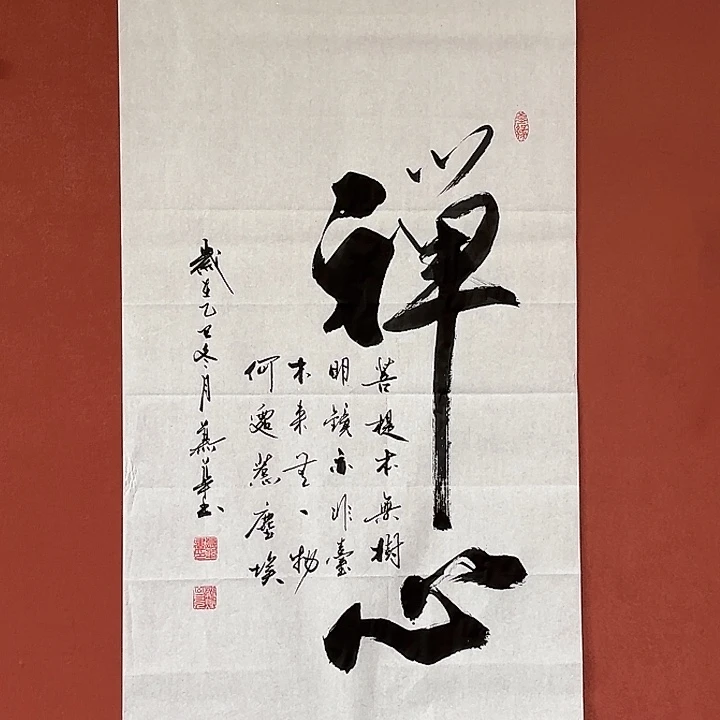 禅心
菩提本無樹
明鏡亦非臺
本来无一物
何處惹塵埃
歲在乙丑冬月